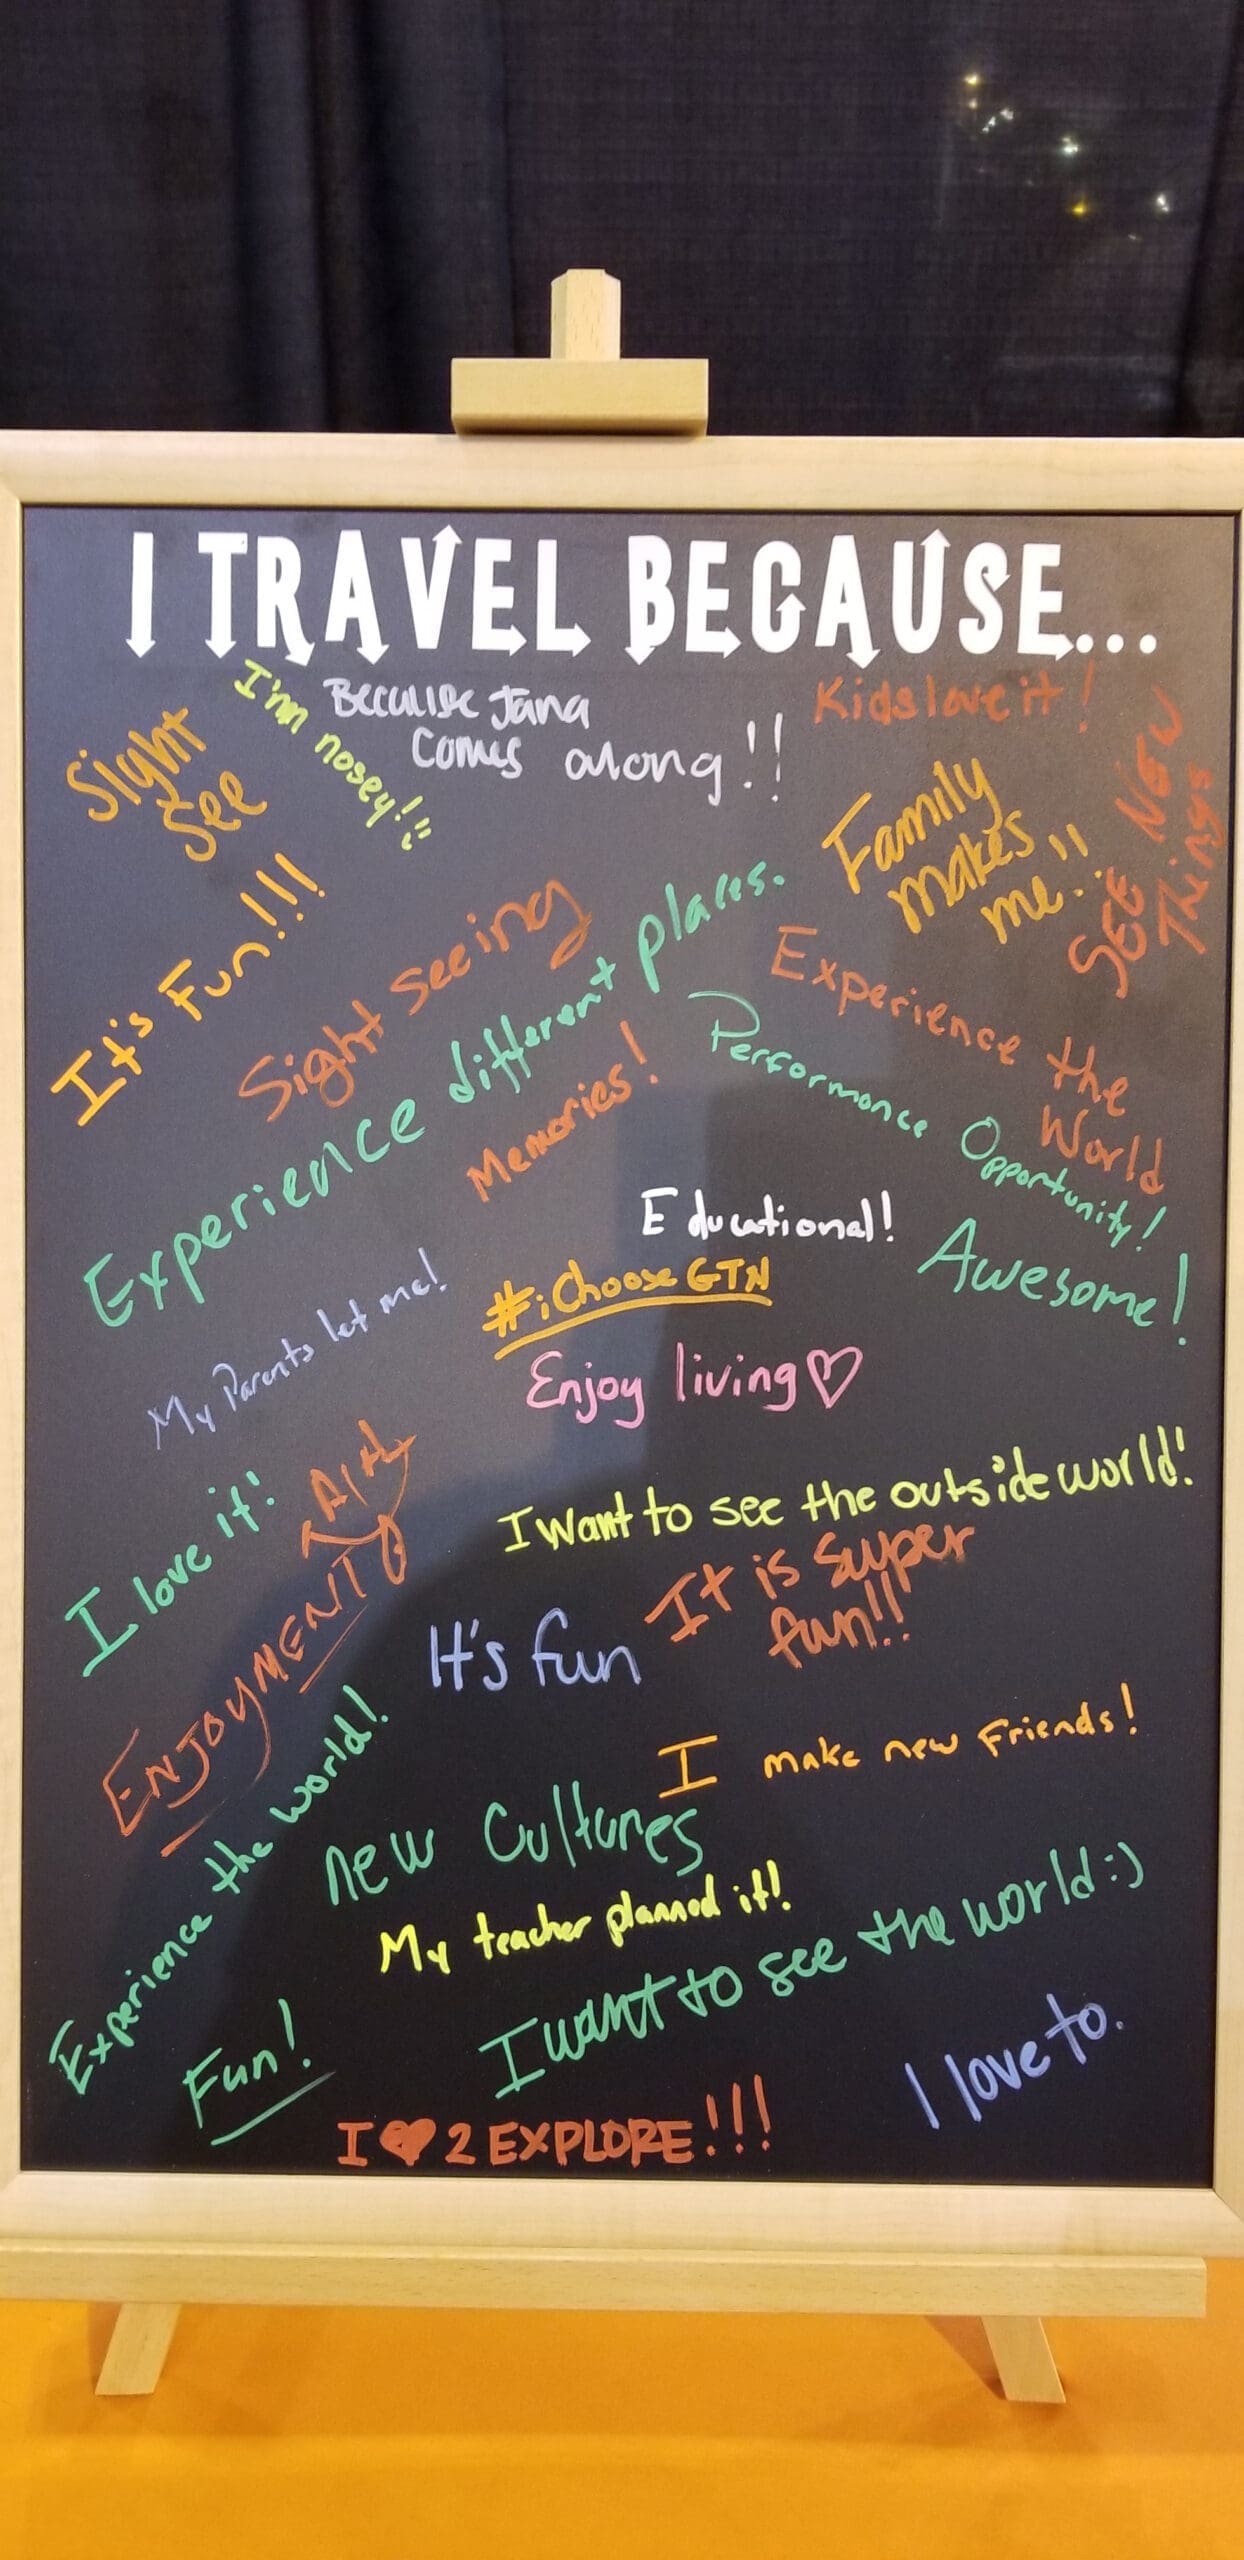 I TRAVEL BECAUSE...
Sight
See
I'm nosey!
Because Jana
Comes along!!
Kids love it!
SEE NEW
Things
Family
makes
me!!
It's Fun!!!
Sight seeing
Experience different places.
Experience the
World
Memories!
Performance Opportunity!
Educational!
Awesome!
My Parents let me!
#iChooseGTN
Enjoy living♡
I love it!
I want to see the outside world!
ENJOYMENT
It is super
fun!!
It's fun
I make new friends!
Experience the world!
New Cultures
My teacher planned it!
I want to see the world :)
Fun!
I love to.
I ♥ 2 EXPLORE!!!